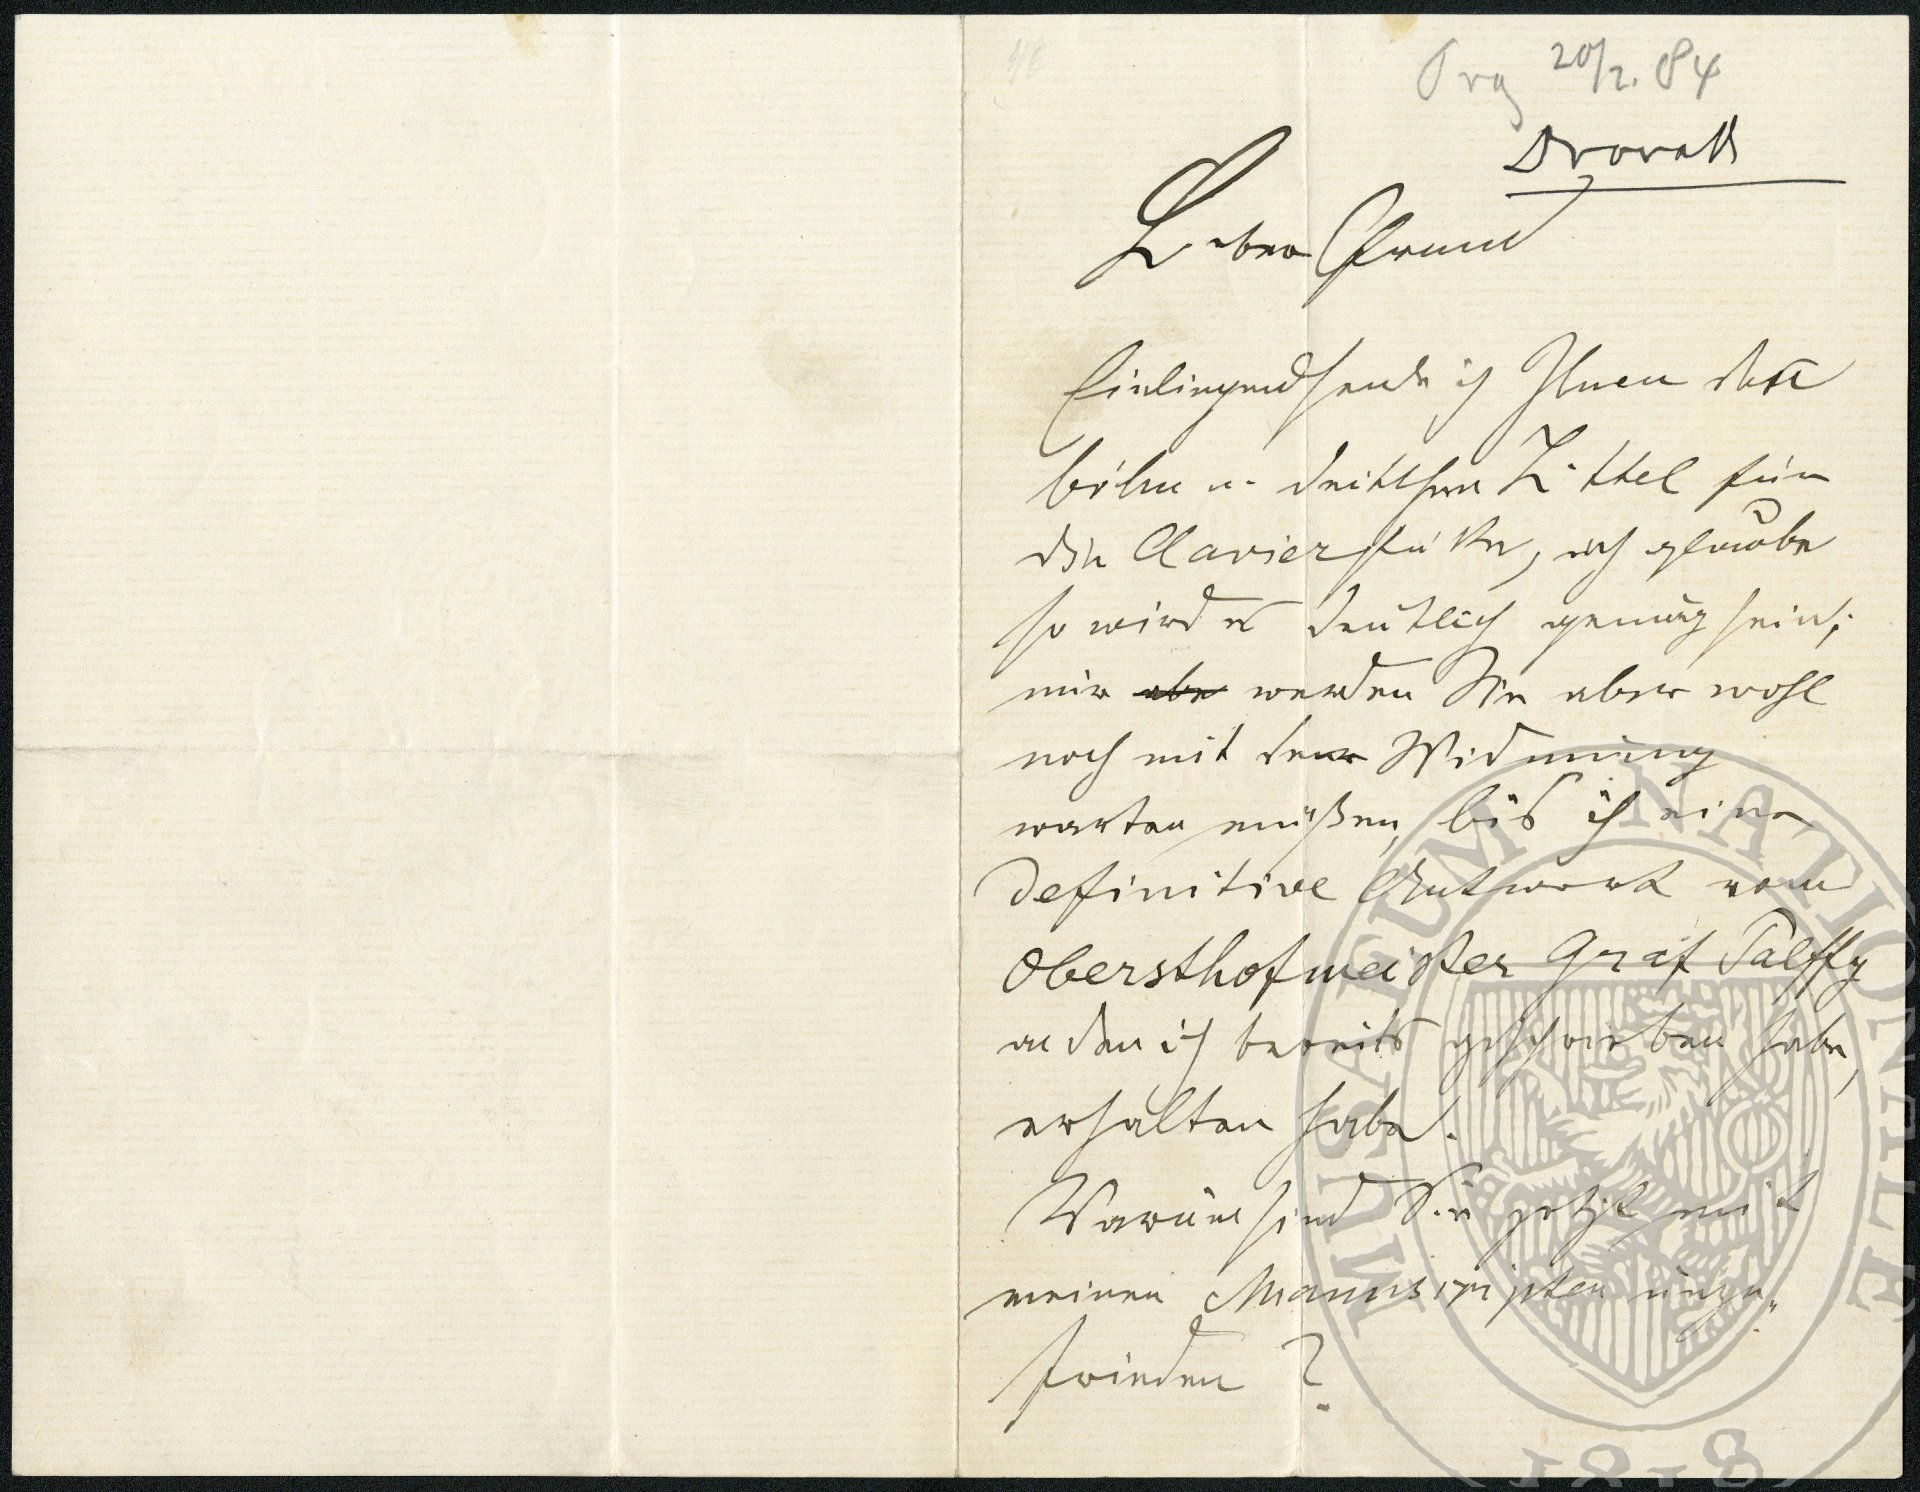 Prag 20/2. 84
Dvorak
Lieber Freund
Einliegend sende ich Ihnen den
böhm u. deutschen Tittel für
die Clavierstücke, ich glaube
so wird es deutlich genug sein;
nur abe werden Sie aber wohl
noch mit der Widmung
warten müßen, bis ich eine
definitive Antwort vom
Obersthofmeister Graf Palffy
an den ich bereits geschrieben habe,
erhalten habe.
Warum sind Sie jetzt mit
meinen Manuscripten unzu„
frieden?
MUSAEUM NATIONALE
1818